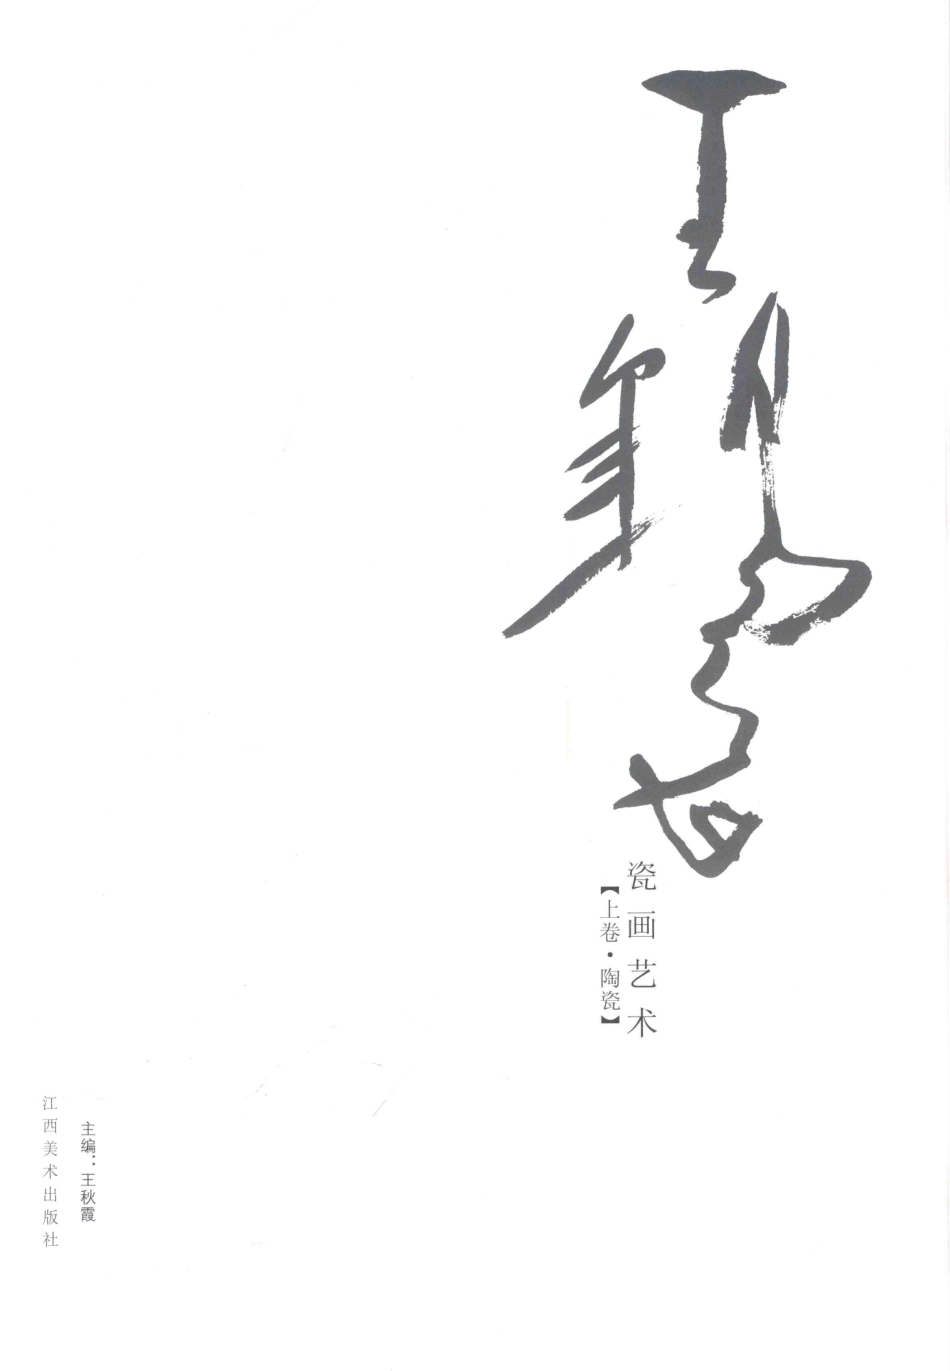 王锡良
瓷画艺术
【上卷·陶瓷】
主编：王秋霞
江西美术出版社